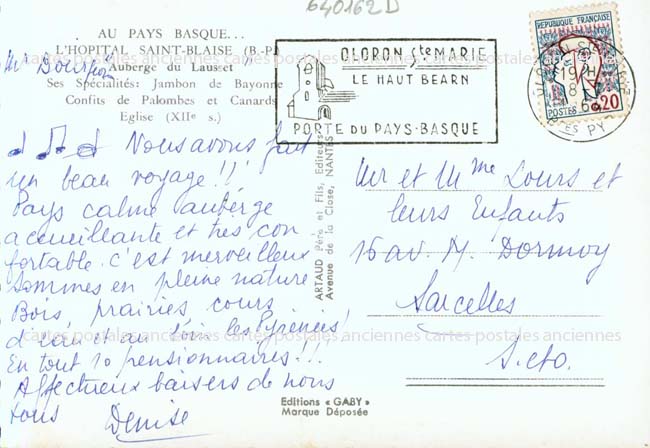 640162D
AU PAYS BASQUE...
L'HOPITAL SAINT-BLAISE (B.-P.)
"Auberge du Lausset"
Ses Spécialités: Jambon de Bayonne
Confits de Palombes et Canards
Eglise (XIIe s.)
Nous avons fait
un beau voyage !!
Pays calme auberge
accueillante et très con
fortable. c'est merveilleux
sommes en pleine nature
Bois prairies cours
d'eau et au loin les Pyrénées!
En tout 10 pensionnaires!!!
Affectueux baisers de nous
tous Denise
ARTAUD Père et Fils, Editeurs
Avenue de la Close, NANTES
Editions « GABY »
Marque Déposée
OLORON Ste MARIE
LE HAUT BEARN
PORTE DU PAYS-BASQUE
REPUBLIQUE FRANÇAISE
POSTES 0,20
19H
8
Mr et Mme Lours et
leurs Enfants
15 av. M. Dormoy
Sarcelles
S.eto.
cartes postales anciennes cartes postales anciennes cartes postales anciennes